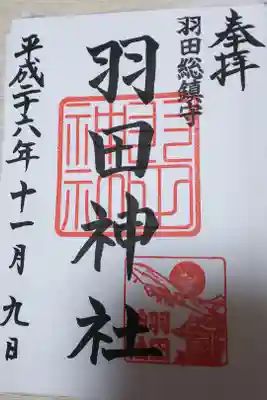 奉拝
羽田総鎮守
羽田神社
平成二十六年十一月九日